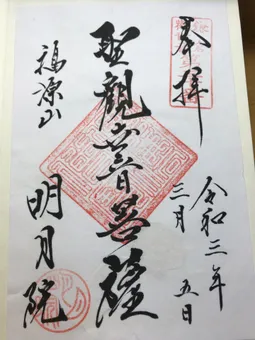 奉拝
令和三年
三月五日
聖觀世音菩薩
福源山
明月院